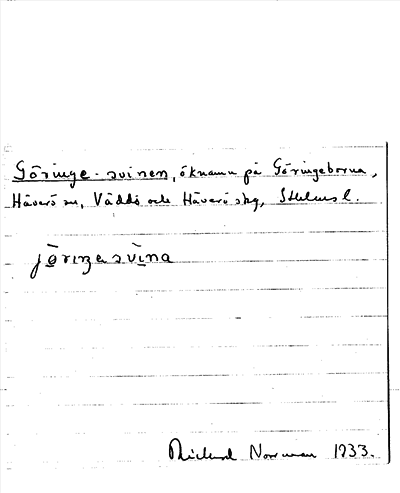 Göringe-svinen, öknamn på Göringeborna,
Häverö sn, Väddö och Häverö skg, Sthlms l.
jö̀riŋasvìna
Richard Norrman 1933.